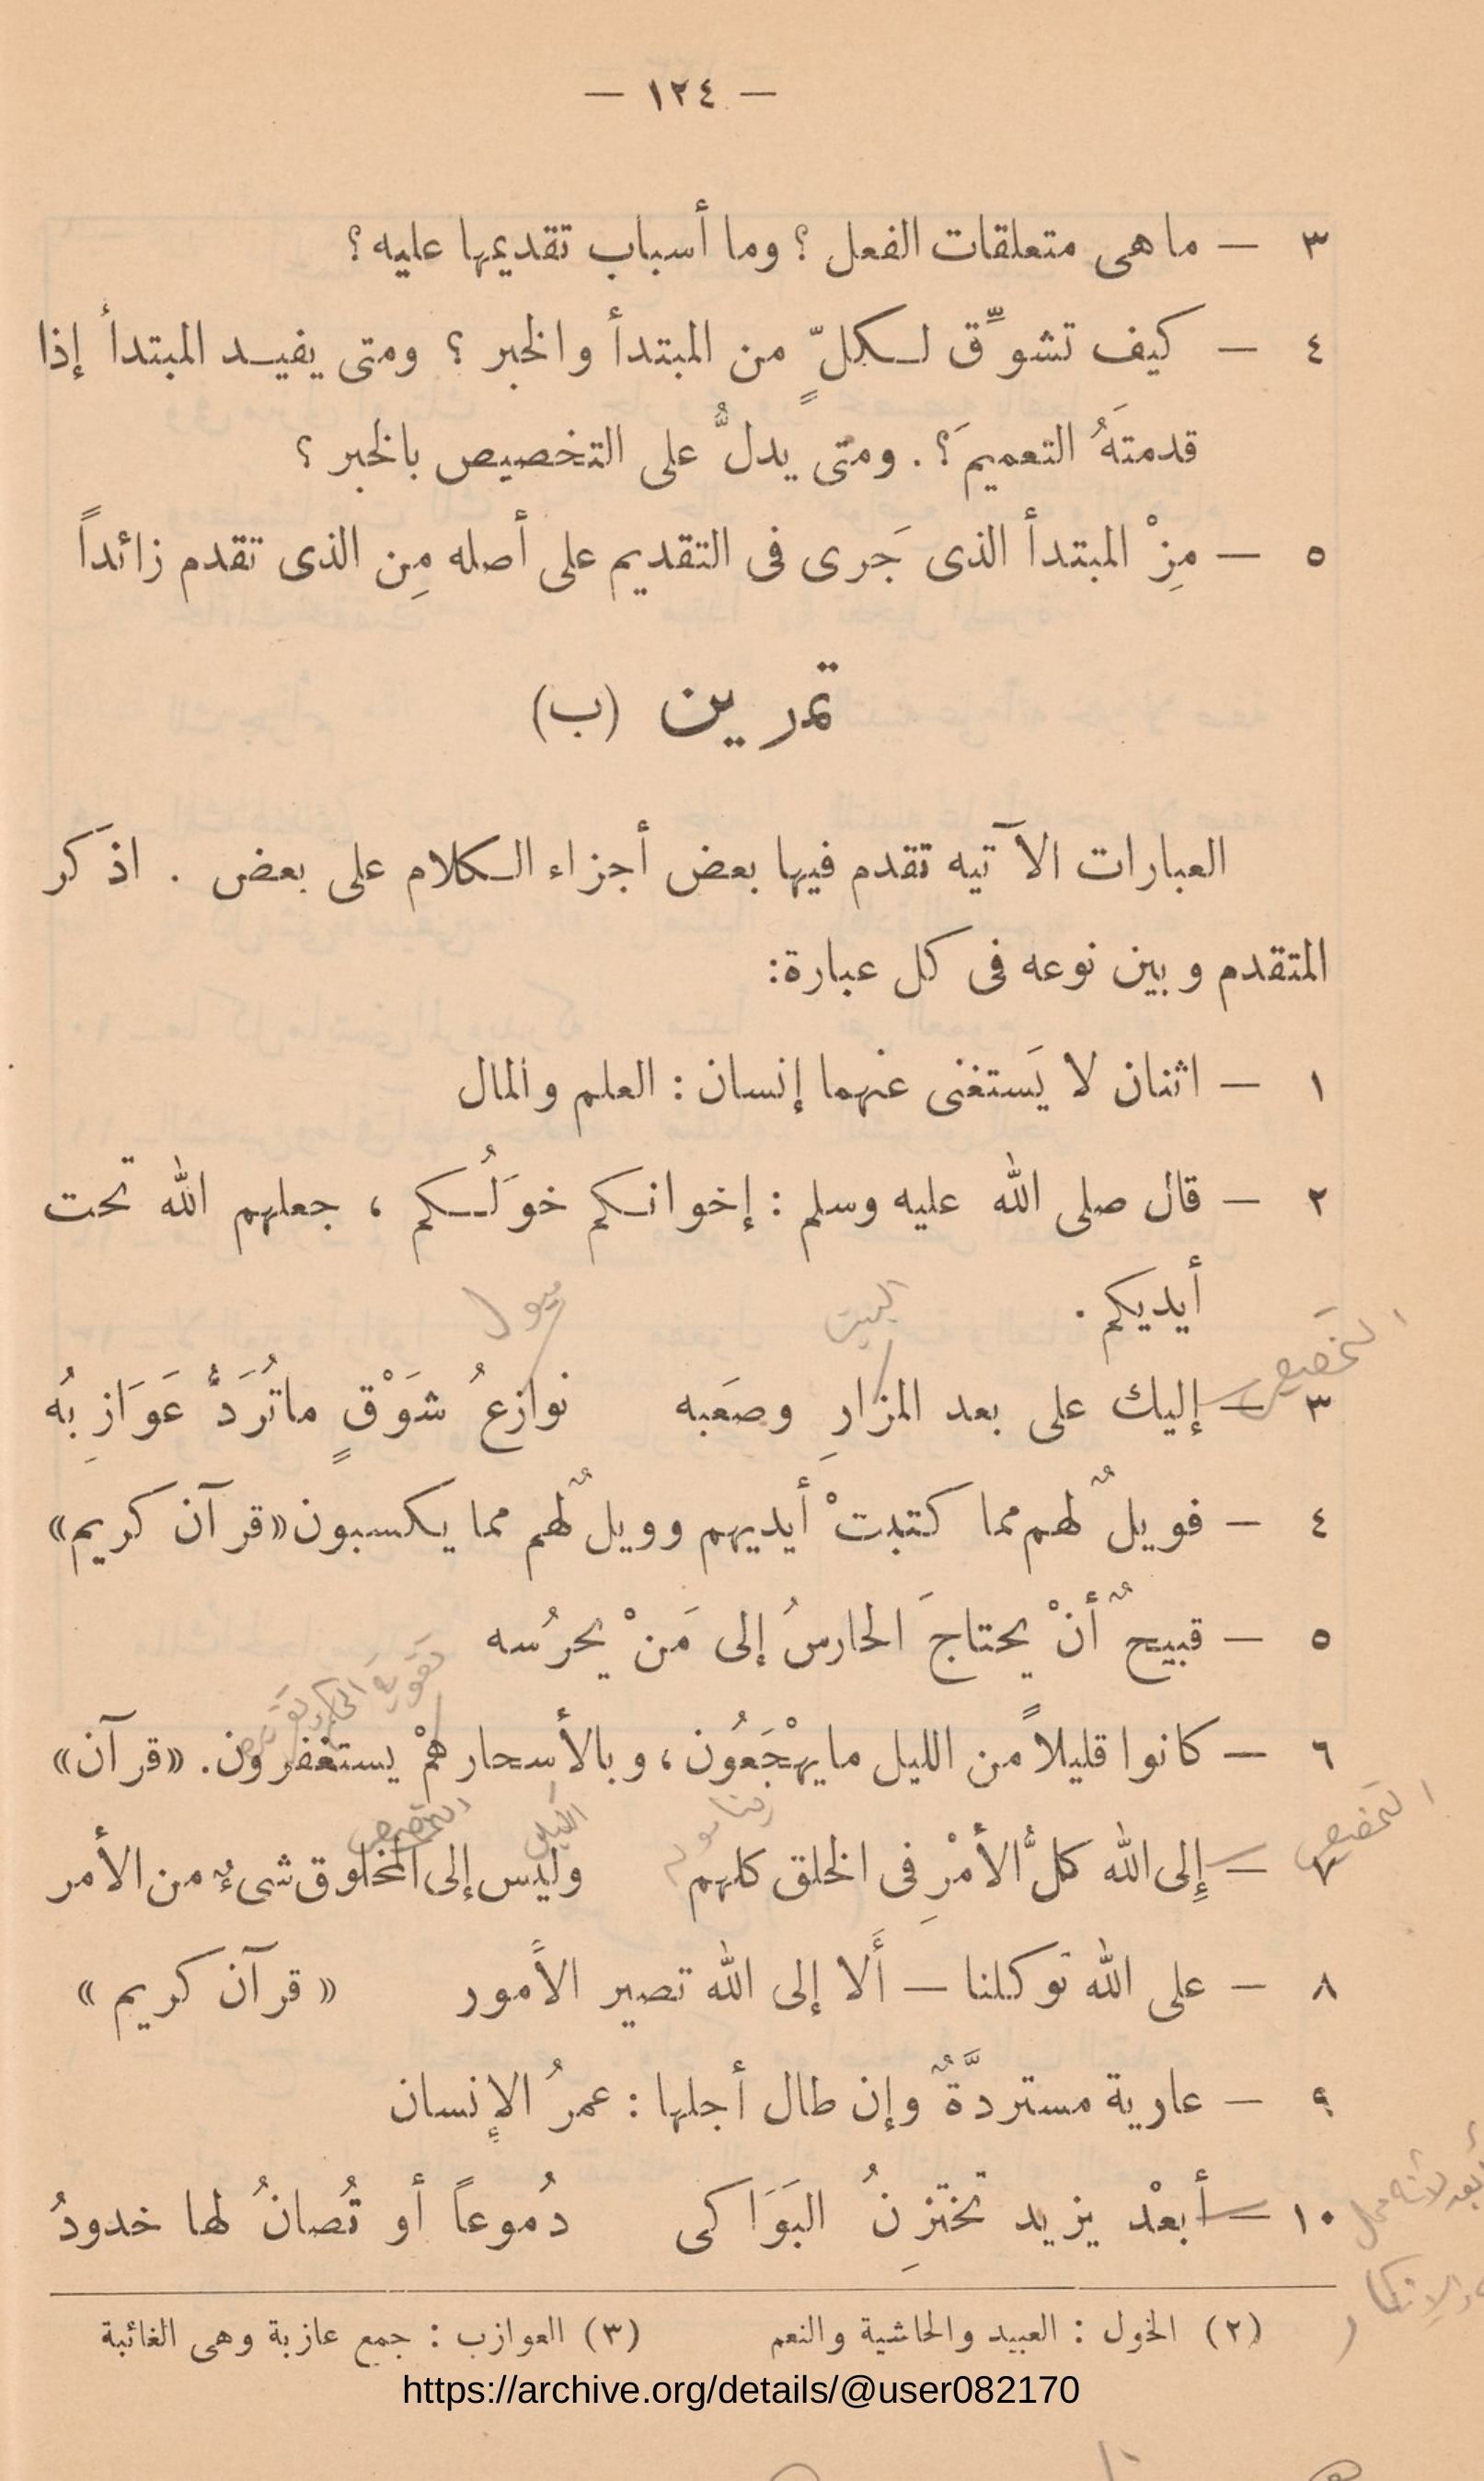 — ١٢٤ —
٣ — ما هى متعلقات الفعل ؟ وما أسباب تقديمها عليه ؟
٤ — كيف تشوِّق لكلّ من المبتدأ والخبر ؟ ومتى يفيد المبتدأ إذا
قدمتَهُ التعميمَ ؟ . ومتى يدلُّ على التخصيص بالخبر ؟
٥ — مِزْ المبتدأ الذى جَرى فى التقديم على أصله مِن الذى تقدم زائداً
تمرين (ب)
العبارات الآتيه تقدم فيها بعض أجزاء الكلام على بعض . اذكر
المتقدم وبين نوعه فى كل عبارة:
١ — اثنان لا يَستغنى عنهما إنسان : العلم والمال
٢ — قال صلى الله عليه وسلم : إخوانكم خوَلُكم ، جعلهم الله تحت
أيديكم .
البيت
التخصيص
٣ — إليك على بعد المزارِ وصَعبه نوازعُ شَوْقٍ ماتُرَدُّ عَوَازِبُه
٤ — فويلٌ لهم مما كتبتْ أيديهم وويلٌ لهم مما يكسبون «قرآن كريم»
٥ — قبيحٌ أنْ يحتاجَ الحارسُ إلى مَنْ يحرُسه
٦ — كانوا قليلاً من الليل ما يهْجَعُون ، وبالأسحار همْ يستغفرون. «قرآن»
التخصيص
التخصيص
٧ — إِلى الله كلُّ الأمْرِ فى الخلق كلهم وليس إلى المخلوق شىءٌ من الأمر
٨ — على الله توكلنا — أَلا إلى الله تصير الأمور « قرآن كريم »
٩ — عارية مستردَّةٌ وإن طال أجلها : عمرُ الإنسان
١٠ — أبعْد يزيد تختزِنُ البَوَاكى دُموعاً أو تُصانُ لها خدودُ
(٢) الخول : العبيد والحاشية والنعم (٣) العوازب : جمع عازبة وهى الغائبة
https://archive.org/details/@user082170